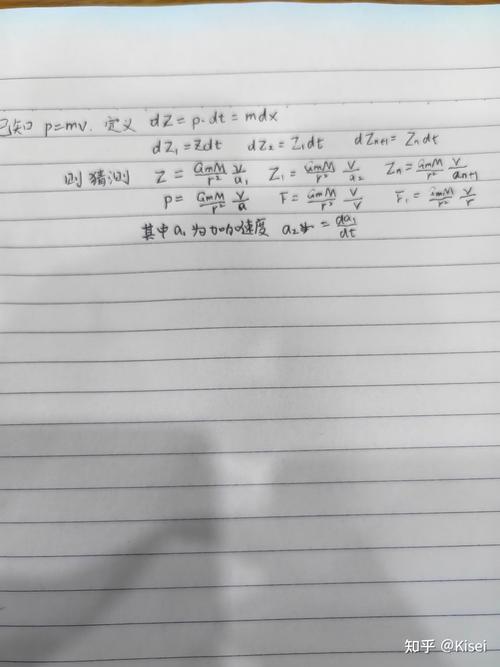 已知 p=mv. 定义 dZ = p·dt = mdx
dZ₁ = Zdt dZ₂ = Z₁dt dZₙ₊₁ = Zₙdt
则猜测 Z = GmM/r² v/a₁ Z₁ = GmM/r² v/a₂ Zₙ = GmM/r² v/aₙ₊₁
P = GmM/r² v/a F = GmM/r² v/v F₁ = GmM/r² v/r
其中 a₁ 为加加速度 a₂ = da₁/dt
知乎 @Kisei